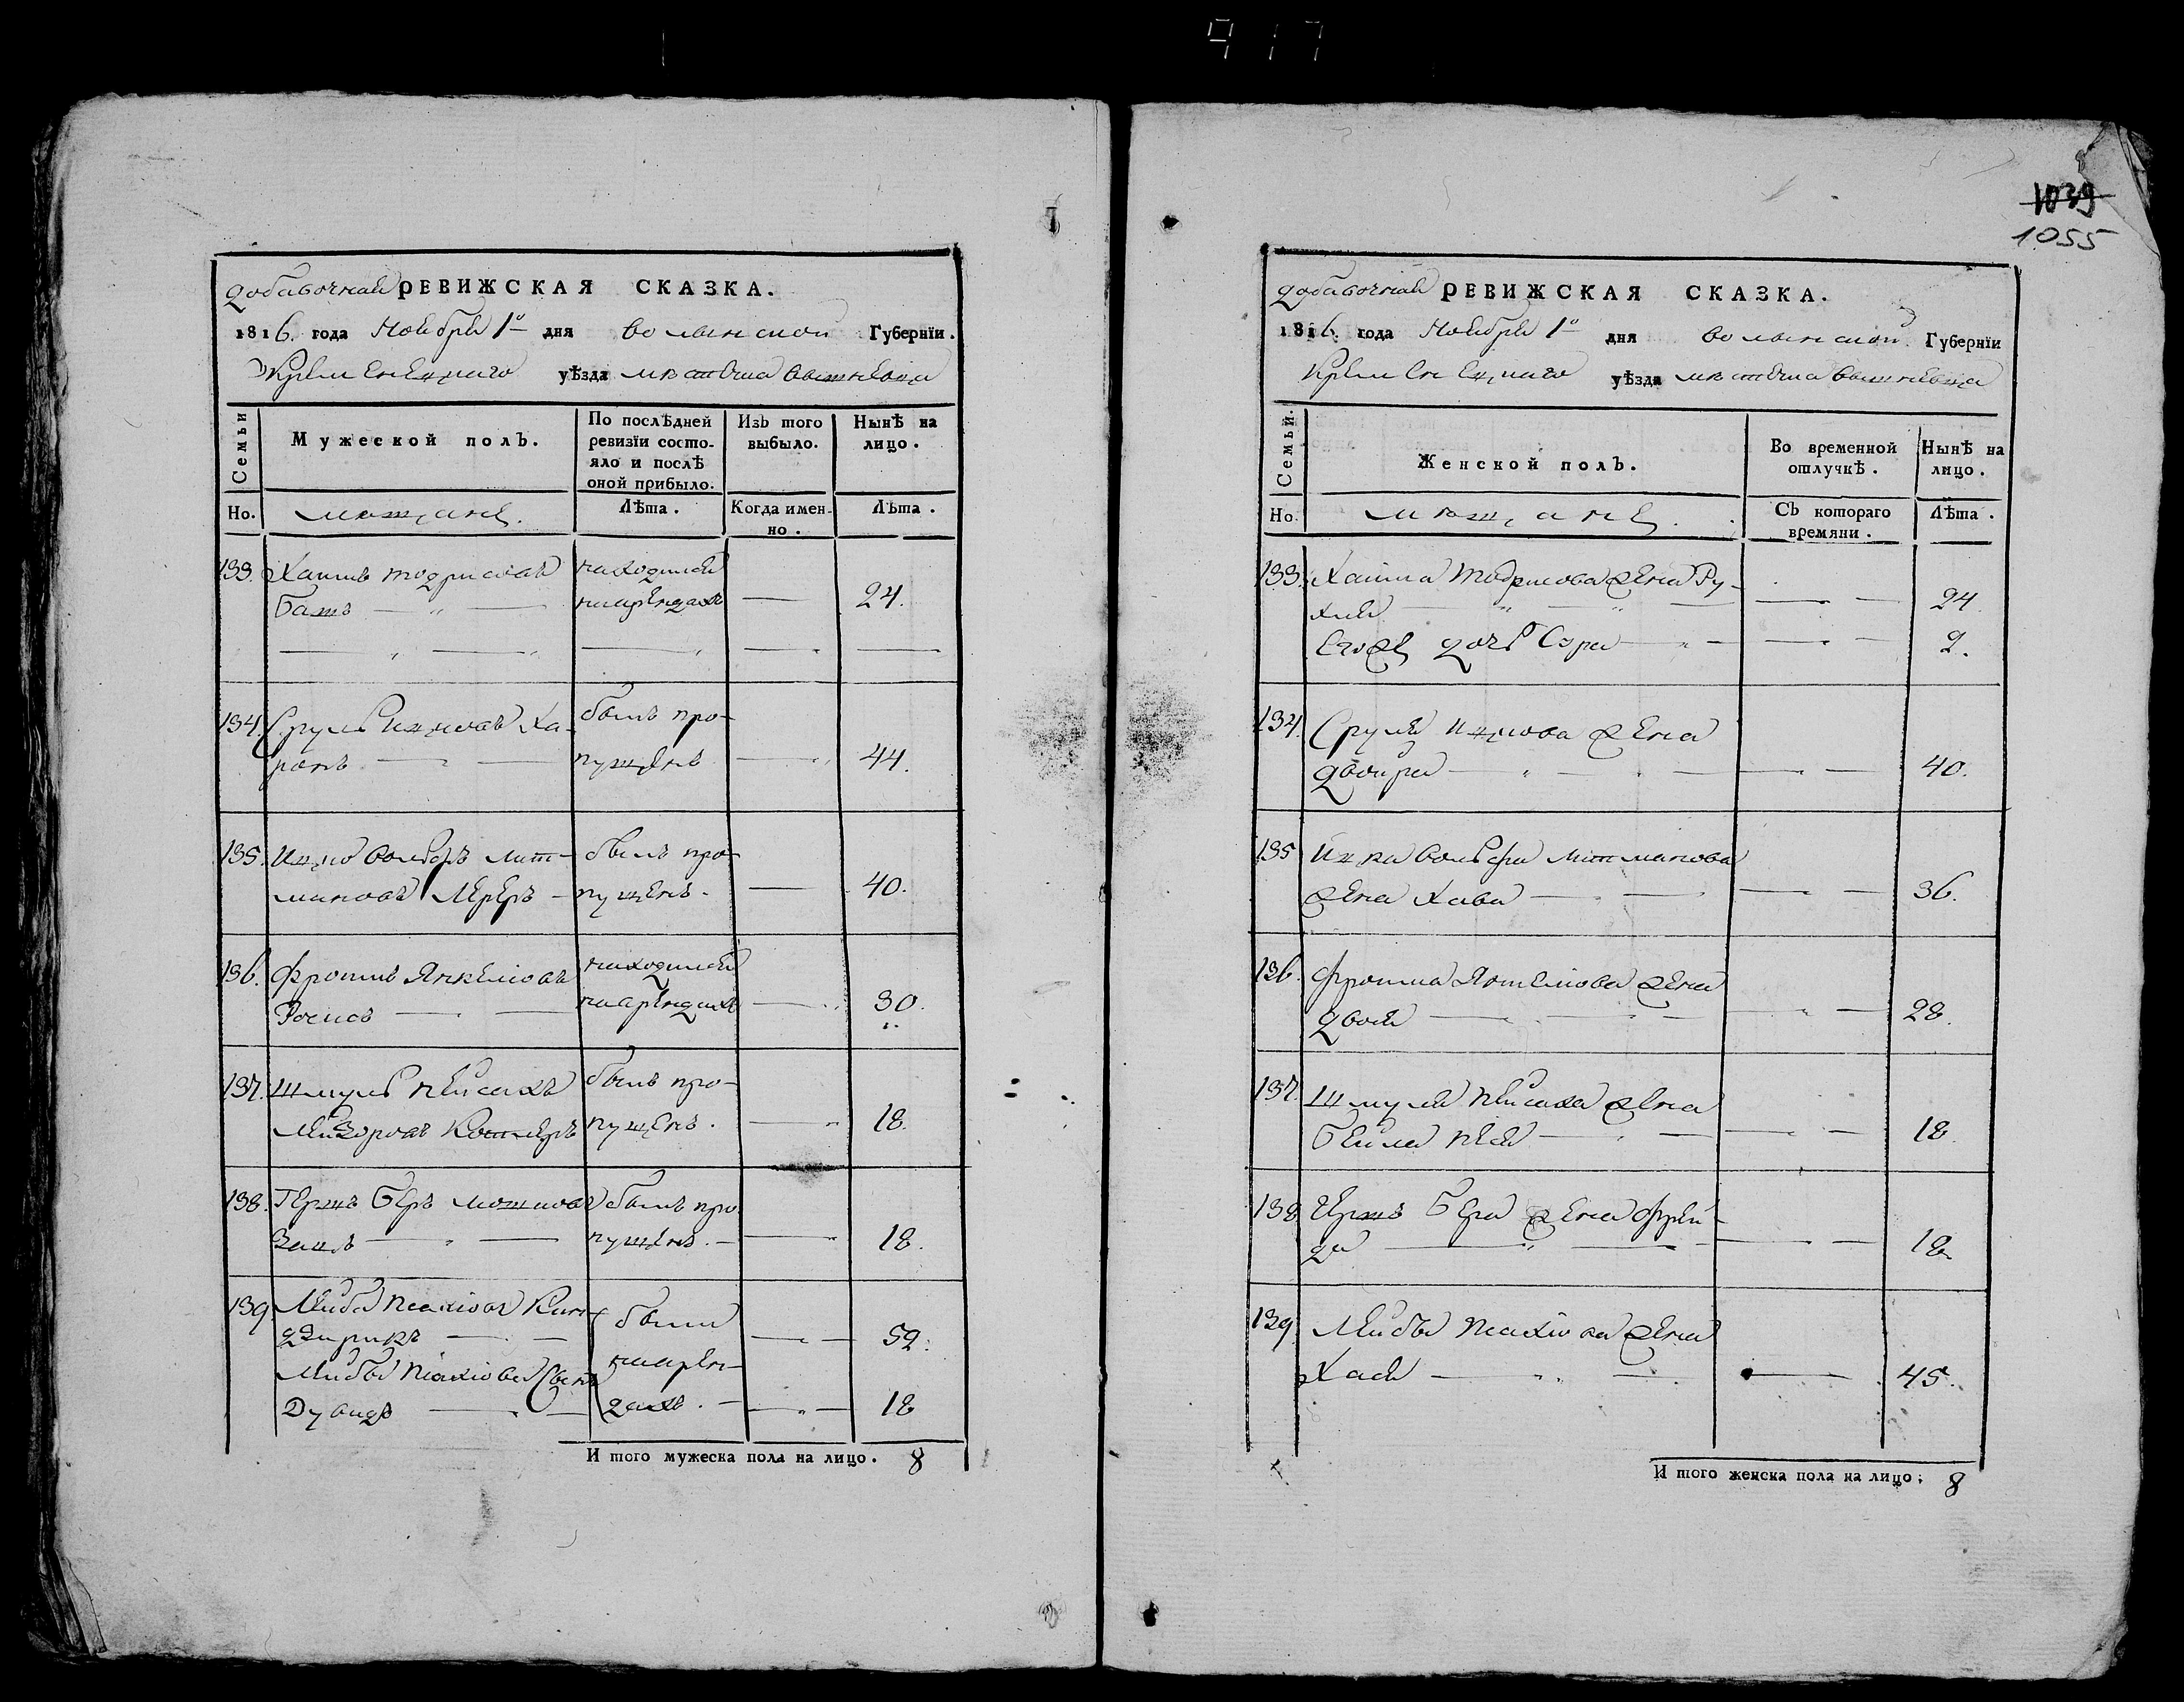 917
добавочная РЕВИЖСКАЯ СКАЗКА.
1816. года Ноября 1го дня Волынской Губернїи.
Кременецкаго уѣзда мѣстечка Вишневца
Семьи
Мужеской полъ.
По послѣдней ревизїи состояло и послѣ оной прибыло.
Изъ того выбыло.
Нынѣ на лицо.
Но.
мещане.
Лѣта.
Когда именно.
Лѣта.
133. Хаимъ Тодрисовъ находился
Башъ на арендахъ 24.
134. Сруль Ицковъ Ха- былъ про-
ропъ пущенъ 44.
135. Ицко Вольфъ Лит- былъ про-
мановъ Лереръ пущенъ. 40.
136. Фроимъ Янкелiовъ находился
на арендахъ 30.
137. Шмуль Пейсахъ былъ про-
Лейзоровъ пущенъ. 18.
138. Гершъ Беръ Мошковъ былъ про
пущенъ. 18.
139. Лейба были
59.
Лейбы Сынъ на арен-
Дувидъ дахъ. 18
И того мужеска пола на лицо. 8
1039
1055
добавочная РЕВИЖСКАЯ СКАЗКА.
1816. года Ноября 1го дня Волынской Губернїи
Кременецкаго уѣзда мѣстечка Вишневца
Семьи.
Женской полъ.
Во временной отлучкѣ.
Нынѣ на лицо.
Но.
мещане.
Съ котораго времяни.
Лѣта.
133. Хаима Тодрисова жена Ру-
хля 24.
Егоже дочь Сура 2.
134. Сруля Ицкова жена
Двойра 40.
135 Ицка Вольфа Литманова
жена Хава 36.
136. Фроима Янкелiова жена
Двося 28.
137. Шмуля Пейсаха жена
Бейла Песя 18
138 Герша Бера жена Фрей-
да 18
139. Лейбы жена
Хася 45.
И того женска пола на лицо; 8